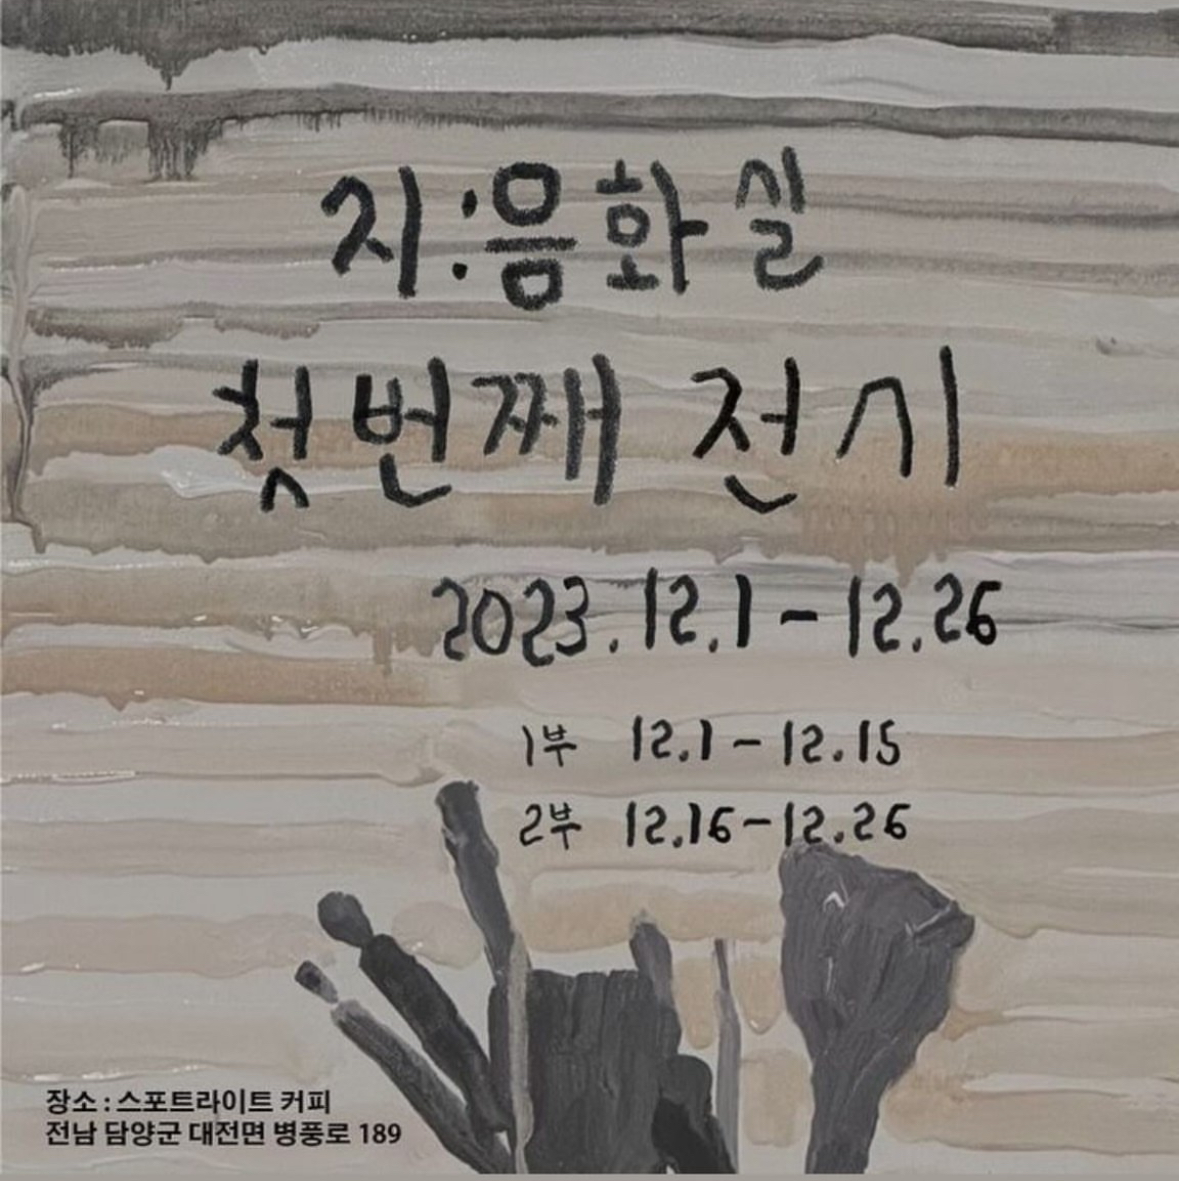 지:음화실
첫번째 전시
2023.12.1 - 12.26
1부 12.1 - 12.15
2부 12.16 - 12.26
장소 : 스포트라이트 커피
전남 담양군 대전면 병풍로 189